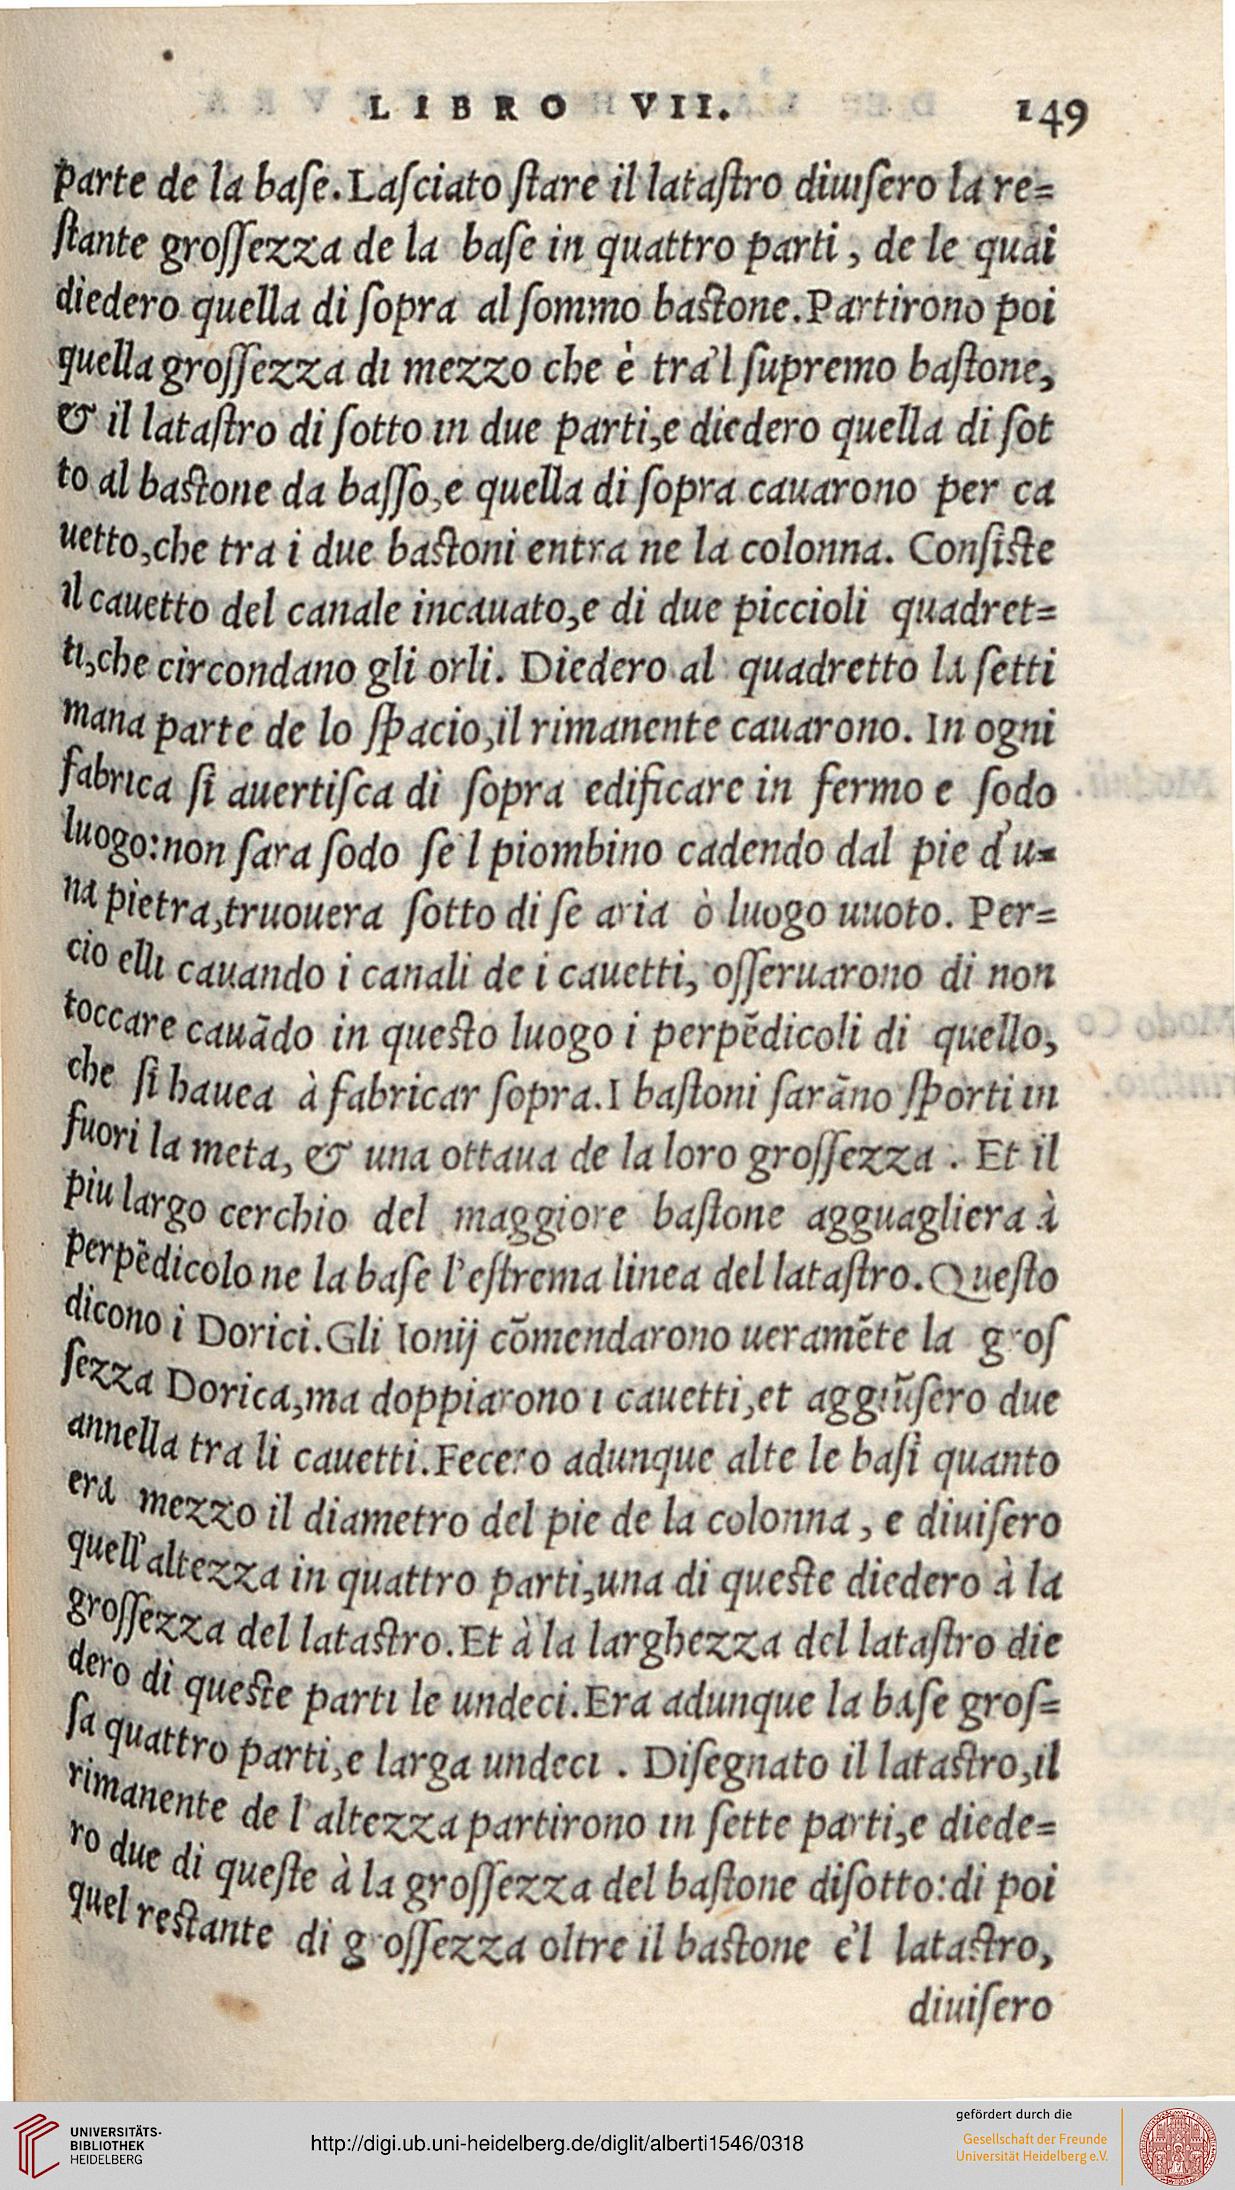 LIBRO VII. 149
parte de la baſe. Laſciato ſtare il lataſtro diuiſero la re=
ſtante groſſezza de la baſe in quattro parti, de le quai
diedero quella di ſopra al ſommo baſtone. Partirono poi
quella groſſezza di mezzo che è tra'l ſupremo baſtone,
& il lataſtro di ſotto in due parti, e diedero quella di ſot
to al baſtone da baſſo, e quella di ſopra cauarono per ca
uetto, che tra i due baſtoni entra ne la colonna. Conſiſte
il cauetto del canale incauato, e di due piccioli quadret=
ti, che circondano gli orli. Diedero al quadretto la ſetti
mana parte de lo ſpacio, il rimanente cauarono. In ogni
fabrica ſi auertiſca di ſopra edificare in fermo e ſodo
luogo: non ſara ſodo ſe'l piombino cadendo dal pie d'u=
na pietra, truouera ſotto di ſe aria ò luogo uuoto. Per=
cio elli cauando i canali de i cauetti, oſſeruarono di non
toccare cauādo in queſto luogo i perpēdicoli di quello,
che ſi hauea à fabricar ſopra. I baſtoni ſarāno ſporti in
fuori la meta, & una ottaua de la loro groſſezza. Et il
piu largo cerchio del maggiore baſtone agguagliera à
perpēdicolo ne la baſe l'eſtrema linea del lataſtro. Queſto
dicono i Dorici. Gli Ionij cōmendarono ueramēte la groſ
ſezza Dorica, ma doppiarono i cauetti, et aggiūſero due
annella tra li cauetti. Fecero adunque alte le baſi quanto
era mezzo il diametro del pie de la colonna, e diuiſero
quell'altezza in quattro parti, una di queſte diedero à la
groſſezza del lataſtro. Et à la larghezza del lataſtro die
dero di queſte parti le undeci. Era adunque la baſe groſ=
ſa quattro parti, e larga undeci. Diſegnato il lataſtro, il
rimanente de l'altezza partirono in ſette parti, e diede=
ro due di queſte à la groſſezza del baſtone diſotto: di poi
quel reſtante di groſſezza oltre il baſtone e'l lataſtro,
diuiſero
UNIVERSITÄTS-
BIBLIOTHEK
HEIDELBERG
http://digi.ub.uni-heidelberg.de/diglit/alberti1546/0318
gefördert durch die
Gesellschaft der Freunde
Universität Heidelberg e.V.